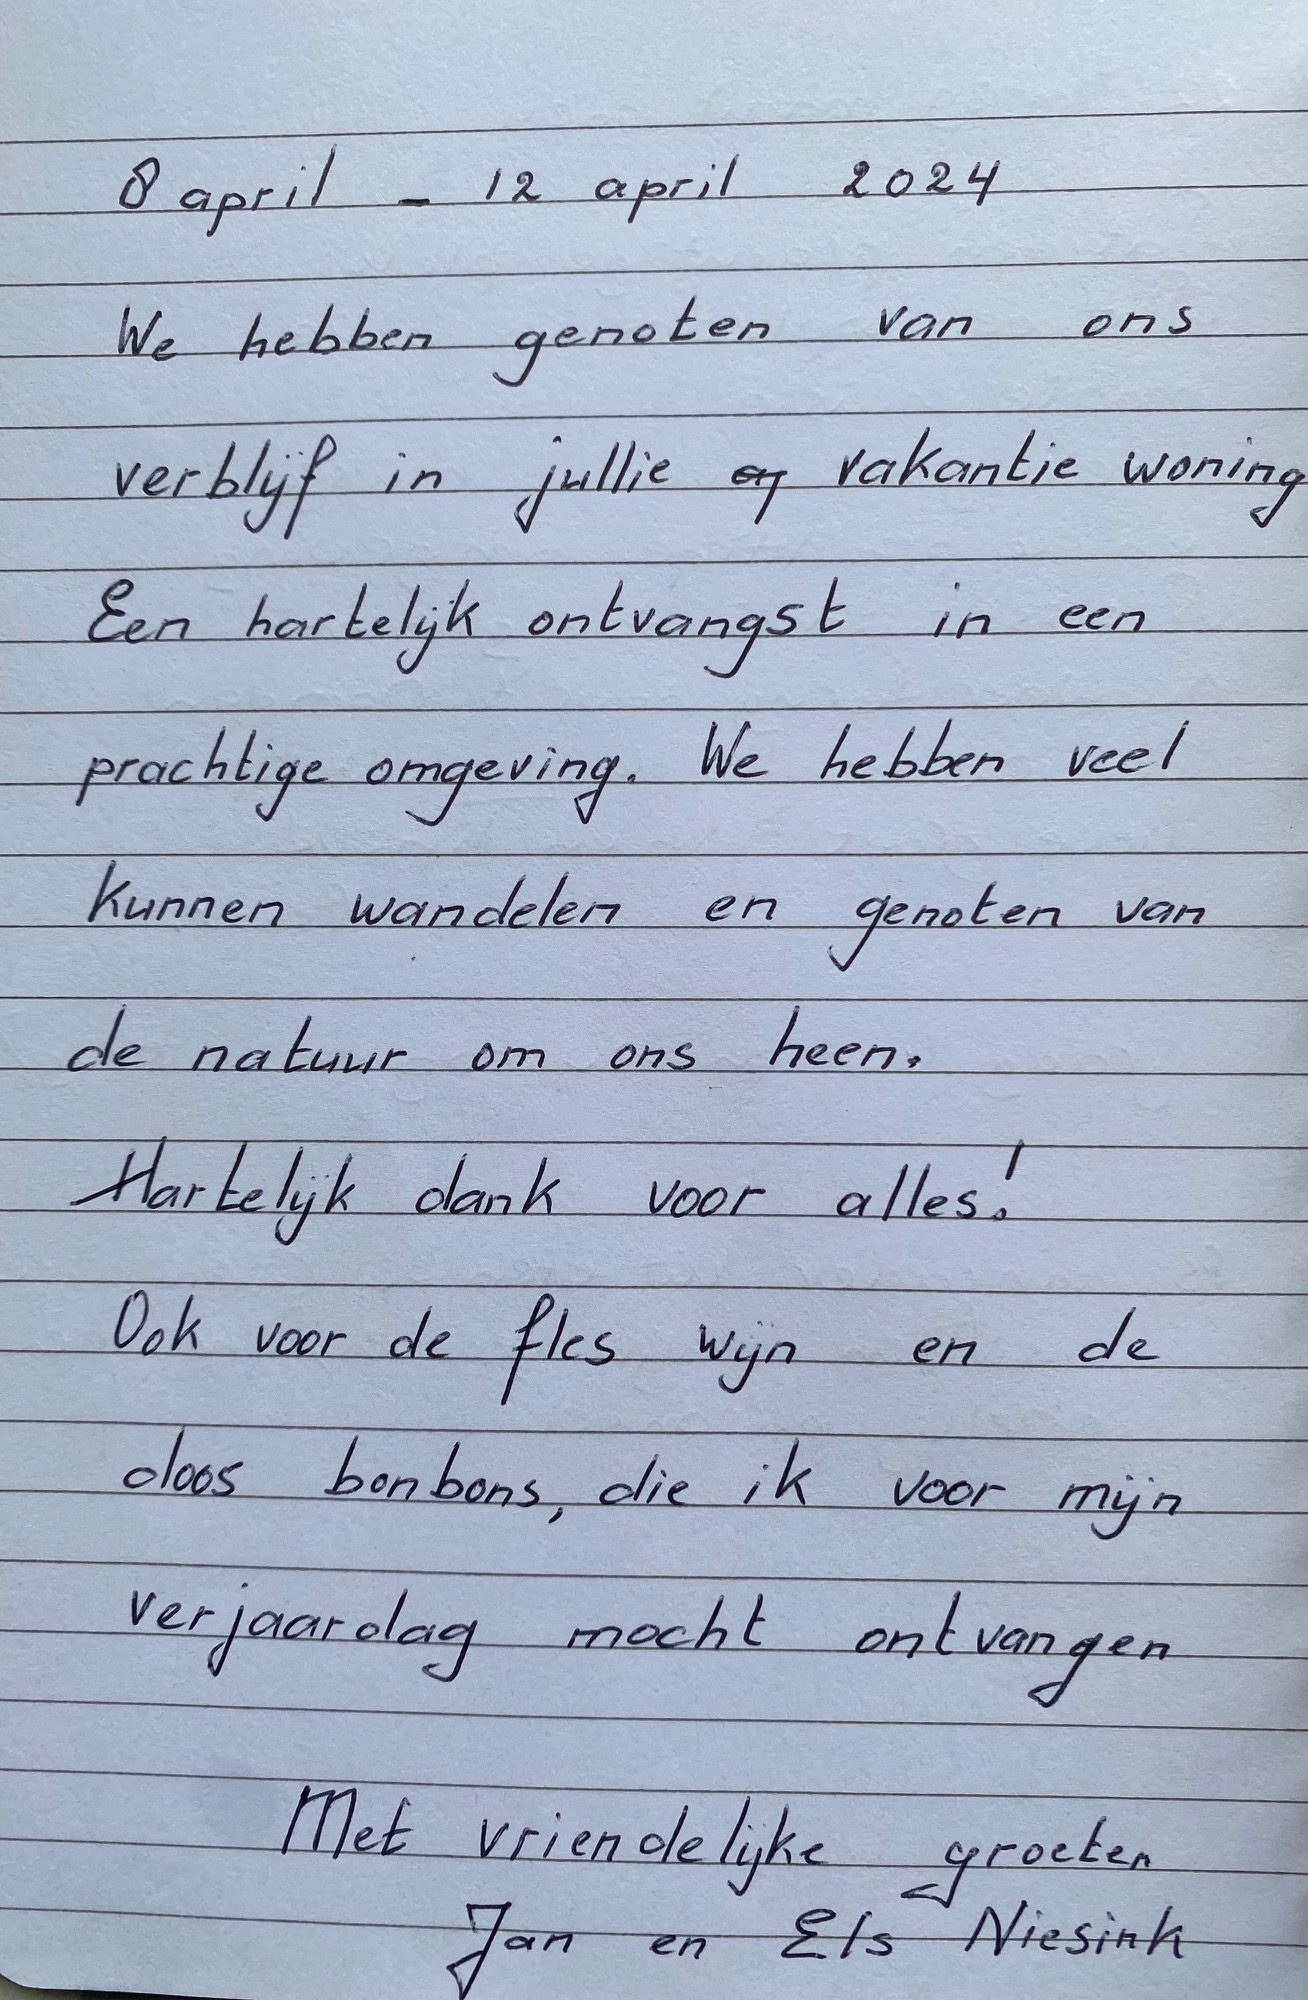 8 april - 12 april 2024
We hebben genoten van ons
verblijf in jullie vakantie woning
Een hartelijk ontvangst in een
prachtige omgeving. We hebben veel
kunnen wandelen en genoten van
de natuur om ons heen.
Hartelijk dank voor alles!
Ook voor de fles wijn en de
doos bonbons, die ik voor mijn
verjaardag mocht ontvangen
Met vriendelijke groeten
Jan en Els Niesink